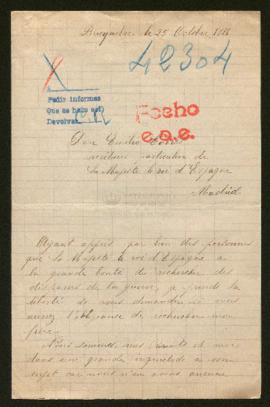 le 25 Octobre 1916
42304
Pedir informes
Que se haga así
Devolver
Fecho
e.a.e.
Don Emilio
secrétaire particulier de
Sa Majesté le roi d'Espagne
Madrid
Ayant appris par bien des personnes
que Sa Majesté le roi d'Espagne a
la grande bonté de rechercher des
disparus de la guerre, je prends la
liberté de vous demander si vous
auriez l'obligeance de rechercher mon
frère.
Nous sommes, mes parents et moi
dans une grande inquiétude à son
sujet car nous n'en avons aucune